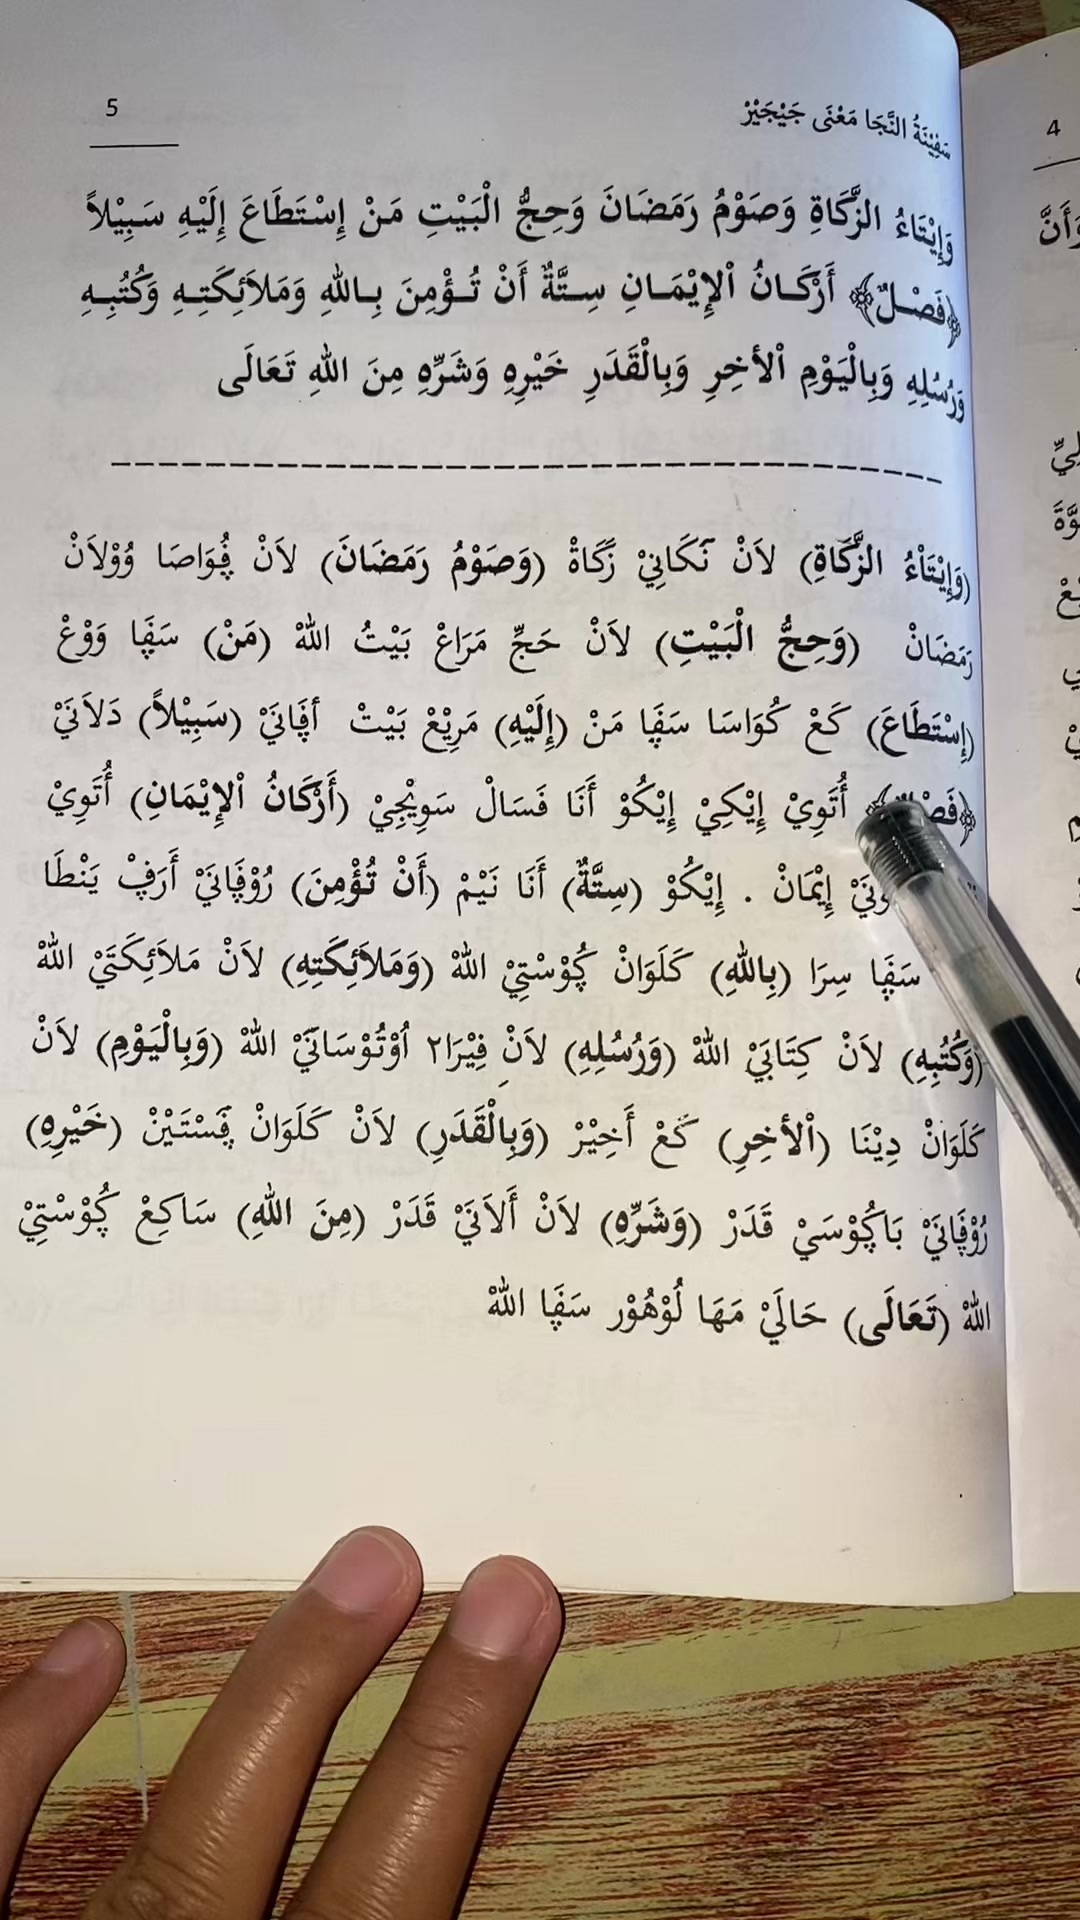 5
سَفِيْنَةُ النَّجَا مَعْنَى جَيْجَيْرْ
4
وَإِيْتَاءُ الزَّكَاةِ وَصَوْمُ رَمَضَانَ وَحِجُّ الْبَيْتِ مَنْ إِسْتَطَاعَ إِلَيْهِ سَبِيْلاً
﴿فَصْلٌ﴾ أَرْكَانُ اْلإِيْمَانِ سِتَّةٌ أَنْ تُؤْمِنَ بِاللهِ وَمَلاَئِكَتِهِ وَكُتُبِهِ
وَرُسُلِهِ وَبِالْيَوْمِ اْلأخِرِ وَبِالْقَدَرِ خَيْرِهِ وَشَرِّهِ مِنَ اللهِ تَعَالَى
(وَإِيْتَاْءُ الزَّكَاةِ) لاَنْ نَكَانِيْ زَكَاةْ (وَصَوْمُ رَمَضَانَ) لاَنْ ڤُوَاصَا وُوْلاَنْ
رَمَضَانْ (وَحِجُّ الْبَيْتِ) لاَنْ حَجِّ مَرَاغْ بَيْتُ اللهْ (مَنْ) سَڤَا وَوْغْ
(إِسْتَطَاعَ) كَعْ كُوَاسَا سَڤَا مَنْ (إِلَيْهِ) مَرِيْعْ بَيْتْ أڤَانَيْ (سَبِيْلاً) دَلاَنَيْ
أُتَوِيْ إِيْكِيْ إِيْكُوْ أَنَا فَسَالْ سَوِيْجِيْ (أَرْكَانُ اْلإِيْمَانِ) أُتَوِيْ
إِيْمَانْ . إِيْكُوْ (سِتَّةٌ) أَنَا نَيْمْ (أَنْ تُؤْمِنَ) رُوْڤَانَيْ أَرَڤْ يَنْطَا
سَڤَا سِرَا (بِاللهِ) كَلَوَانْ ڮُوْسْتِيْ اللهْ (وَمَلاَئِكَتِهِ) لاَنْ مَلاَئِكَتَيْ اللهْ
(وَكُتُبِهِ) لاَنْ كِتَابَيْ اللهْ (وَرُسُلِهِ) لاَنْ فِيْرَا٢ اُوْتُوْسَانَيْ اللهْ (وَبِالْيَوْمِ) لاَنْ
كَلَوَانْ دِيْنَا (اْلأخِرِ) كَعْ أَخِيْرْ (وَبِالْقَدَرِ) لاَنْ كَلَوَانْ ڤَسْتَيْنْ (خَيْرِهِ)
رُوْڤَانَيْ بَاڮُوْسَيْ قَدَرْ (وَشَرِّهِ) لاَنْ أَلاَنَيْ قَدَرْ (مِنَ اللهِ) سَاكِعْ ڮُوْسْتِيْ
اللهْ (تَعَالَى) حَالَيْ مَهَا لُوْهُوْر سَڤَا اللهْ